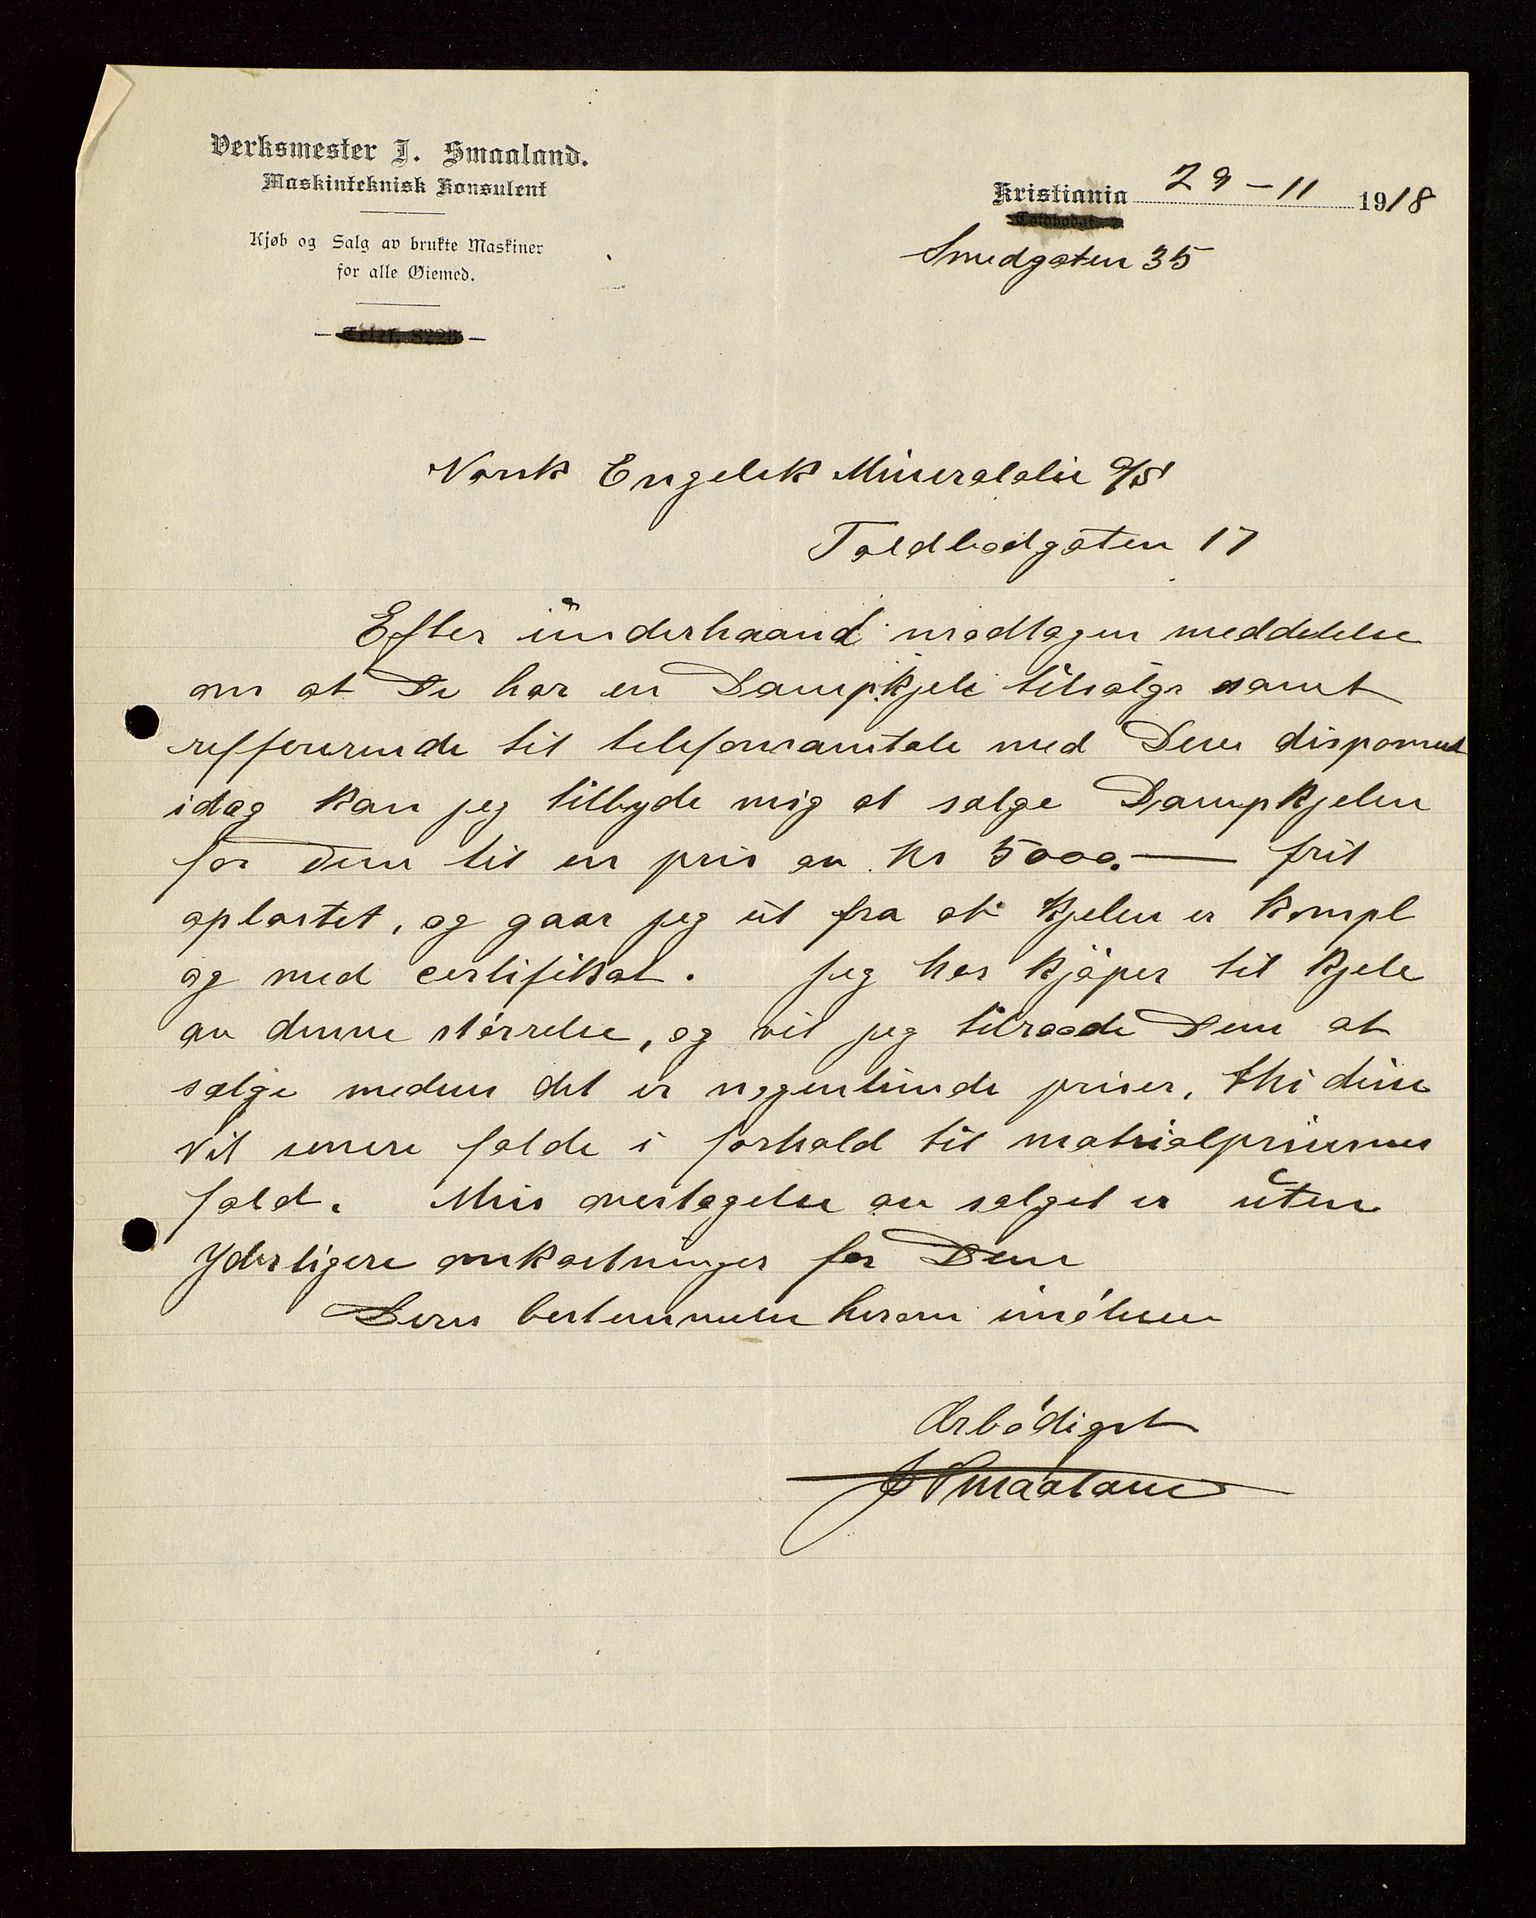 Verksmester J. Smaaland.
Maskinteknisk Konsulent
Kjøb og Salg av brukte Maskiner
for alle Øiemed.
Kristiania 29-11 1918
Smedgaten 35
Norsk Engelsk Mineralolie A/S
Toldbodgaten 17
Efter underhaand modtagen meddelelse
om at De har en Dampkjele tilsalgs samt
refferernde til telefonsamtale med Deres disponent
idag kan jeg tilbyde mig at sælge Dampkjelen
for Dem til en pris av kr 5000.— frit
oplastet, og gaar jeg ut fra at kjelen er kompl
og med certifikat. Jeg har kjøper til kjele
av denne størrelse, og vil jeg tilraade Dem at
sælge medens det er nogenlunde priser, thi disse
vil senere falde i forhold til matrialprisernes
fald. Min overtagelse av salget er uten
yderligere omkostninger for Dem
Deres bestemmelse herom imøtesees
Ærbødigst
J Smaaland